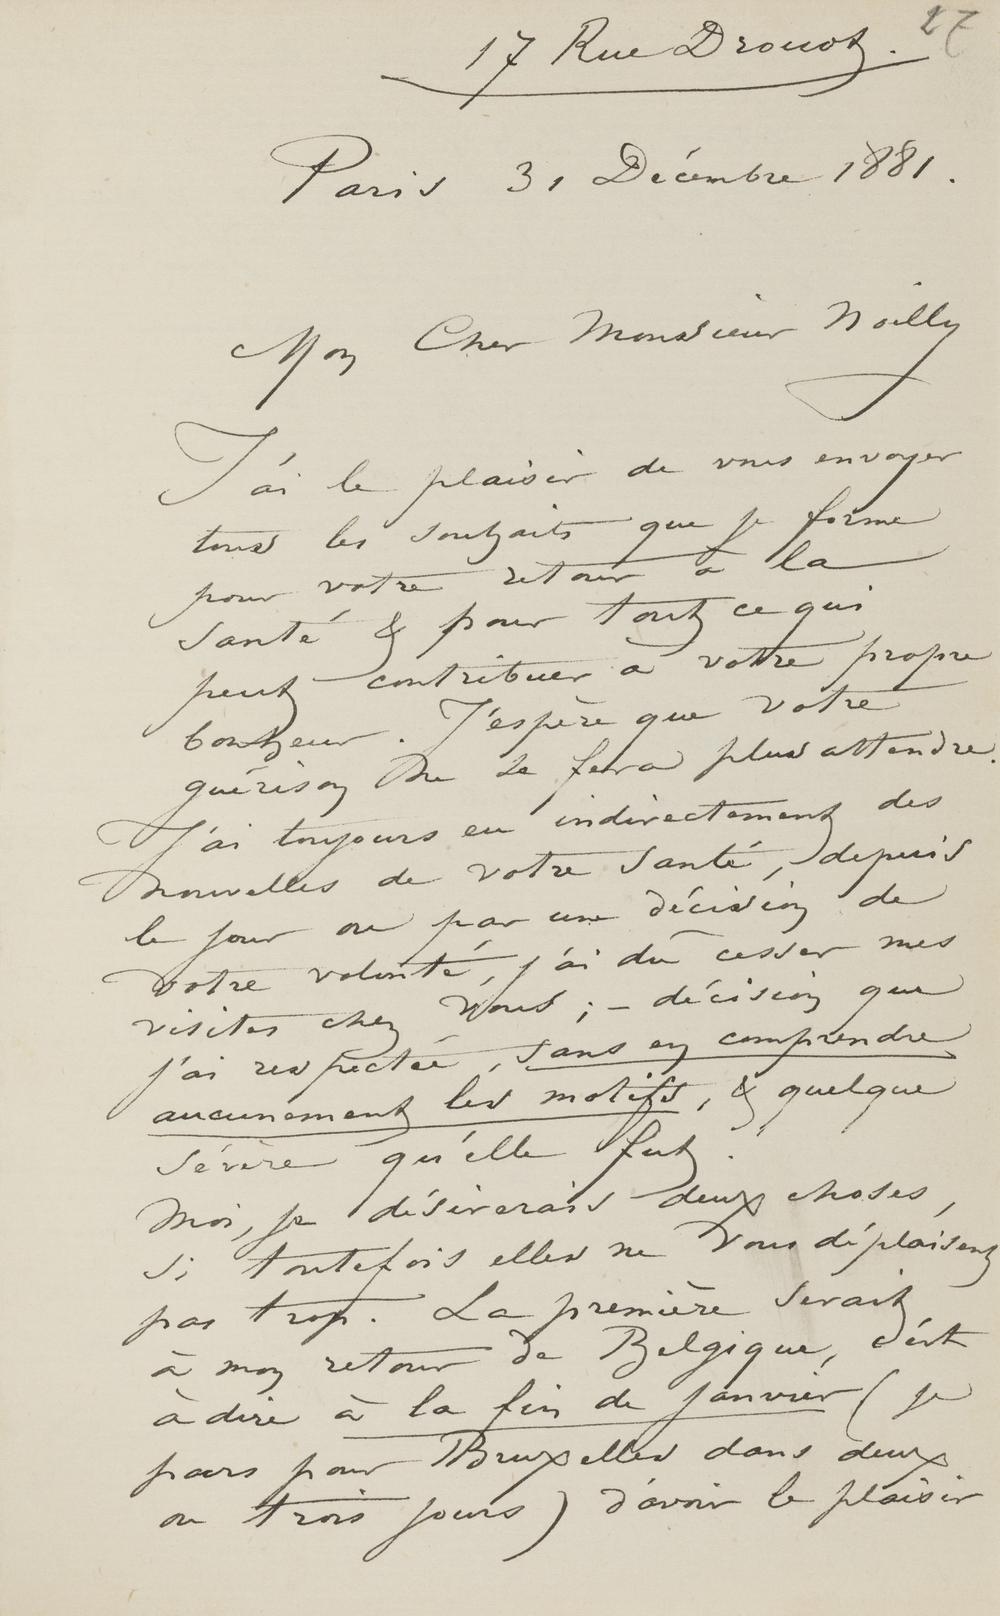 27
17 Rue Drouot.
Paris 31 Décembre 1881.
Mon Cher Monsieur Noilly
J'ai le plaisir de vous envoyer
tous les souhaits que je forme
pour votre retour à la
santé & pour tout ce qui
peut contribuer à votre propre
bonheur. J'espère que votre
guérison ne se fera plus attendre.
J'ai toujours eu indirectement des
nouvelles de votre santé, depuis
le jour ou par une décision de
votre volonté, j'ai dû cesser mes
visites chez vous ; – décision que
j'ai respectée, sans en comprendre
aucunement les motifs, & quelque
sévère qu'elle fut.
Moi, je désirerais deux choses,
si toutefois elles ne vous déplaisent
pas trop. La première serait
à mon retour de Belgique, c'ést
à dire à la fin de janvier ( je
pars pour Bruxelles dans deux
ou trois jours ) d'avoir le plaisir